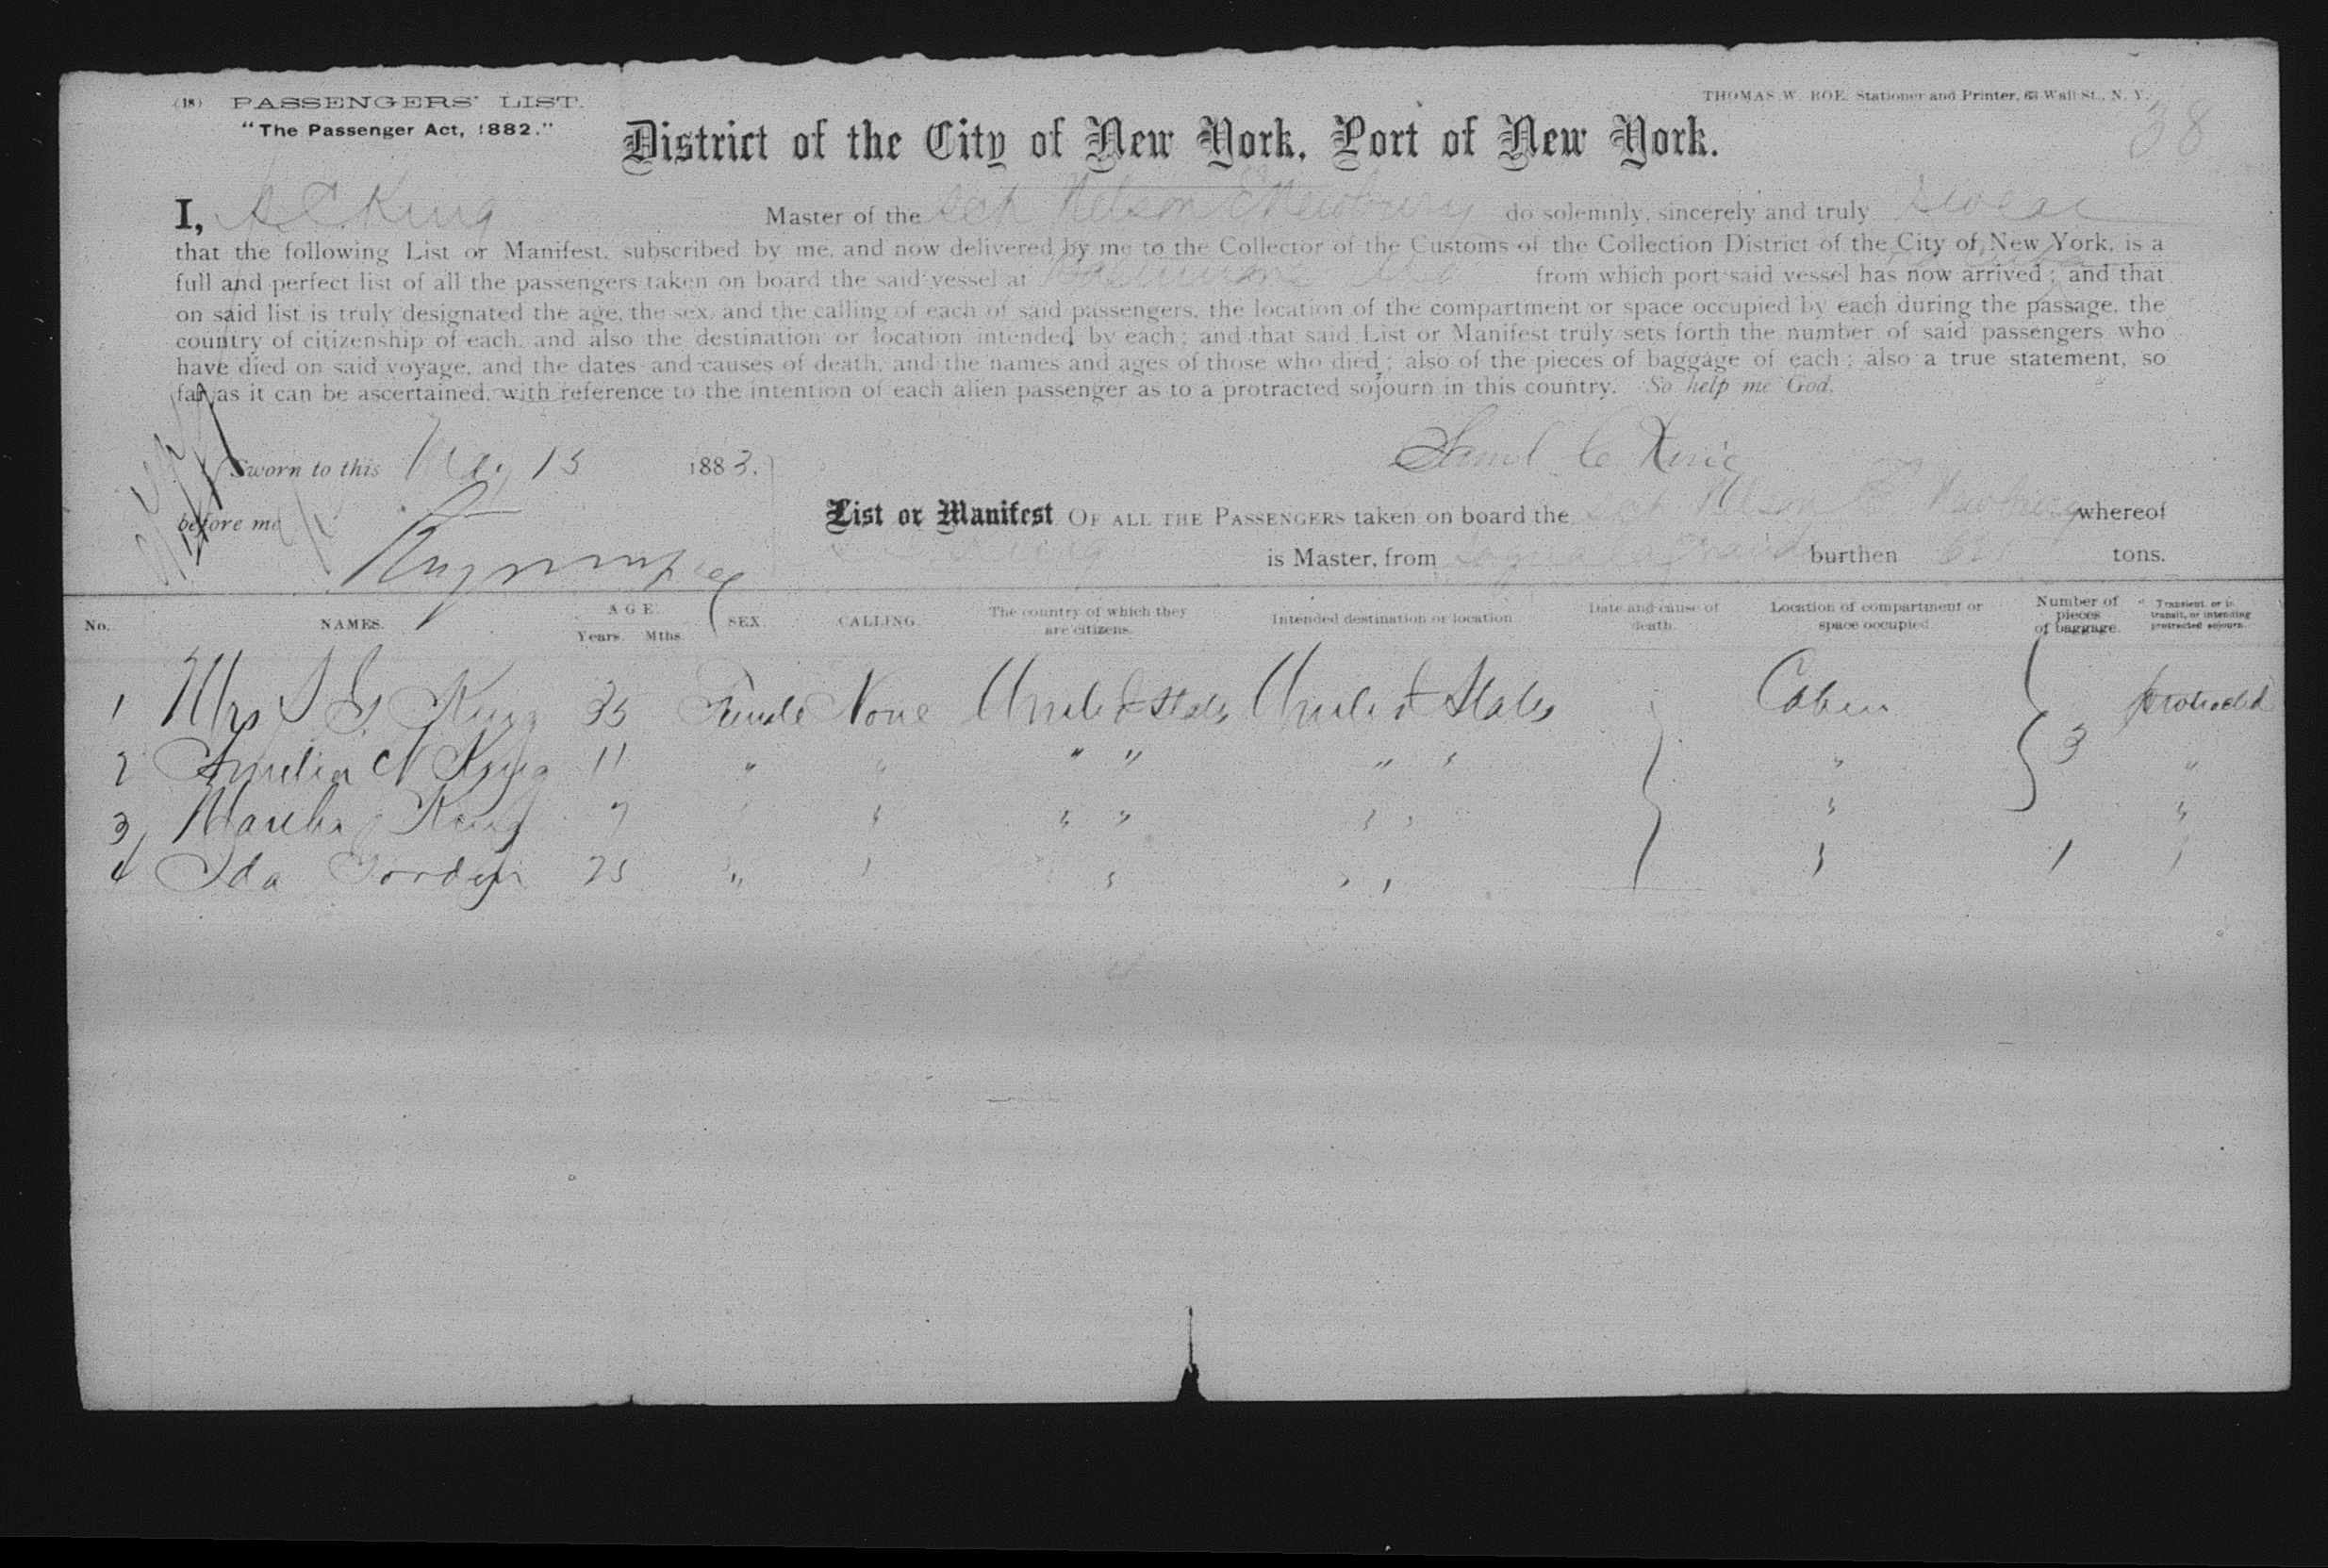 (18) PASSENGERS' LIST.
THOMAS W. ROE, Stationer and Printer, 63 Wall St., N. Y.
"The Passenger Act, 1882."
38
District of the City of New York, Port of New York.
I, S C King Master of the Sch Nelson E Newbury do solemnly, sincerely and truly swear
that the following List or Manifest, subscribed by me, and now delivered by me to the Collector of the Customs of the Collection District of the City of New York, is a
full and perfect list of all the passengers taken on board the said vessel at from which port said vessel has now arrived; and that
on said list is truly designated the age, the sex, and the calling of each of said passengers, the location of the compartment or space occupied by each during the passage, the
country of citizenship of each, and also the destination or location intended by each; and that said List or Manifest truly sets forth the number of said passengers who
have died on said voyage, and the dates and causes of death, and the names and ages of those who died; also of the pieces of baggage of each; also a true statement, so
far as it can be ascertained, with reference to the intention of each alien passenger as to a protracted sojourn in this country. So help me God.
Saml C King
Sworn to this May 15 1883.
before me
List or Manifest OF ALL THE PASSENGERS taken on board the Sch Nelson E Newbury whereof
S C King is Master, from burthen tons.
No. NAMES. AGE. Years. Mths. SEX. CALLING. The country of which they are citizens. Intended destination or location. Date and cause of death. Location of compartment or space occupied. Number of pieces of baggage. Transient, or in transit, or intending protracted sojourn.
1 Mrs S King 35 Female None United States United States Cabin protracted
2 Amelia N King 11 " " " " " " " 3 "
3 Martha King 7 " " " " " " " "
4 Ida Gordon 25 " " " " " " 1 "